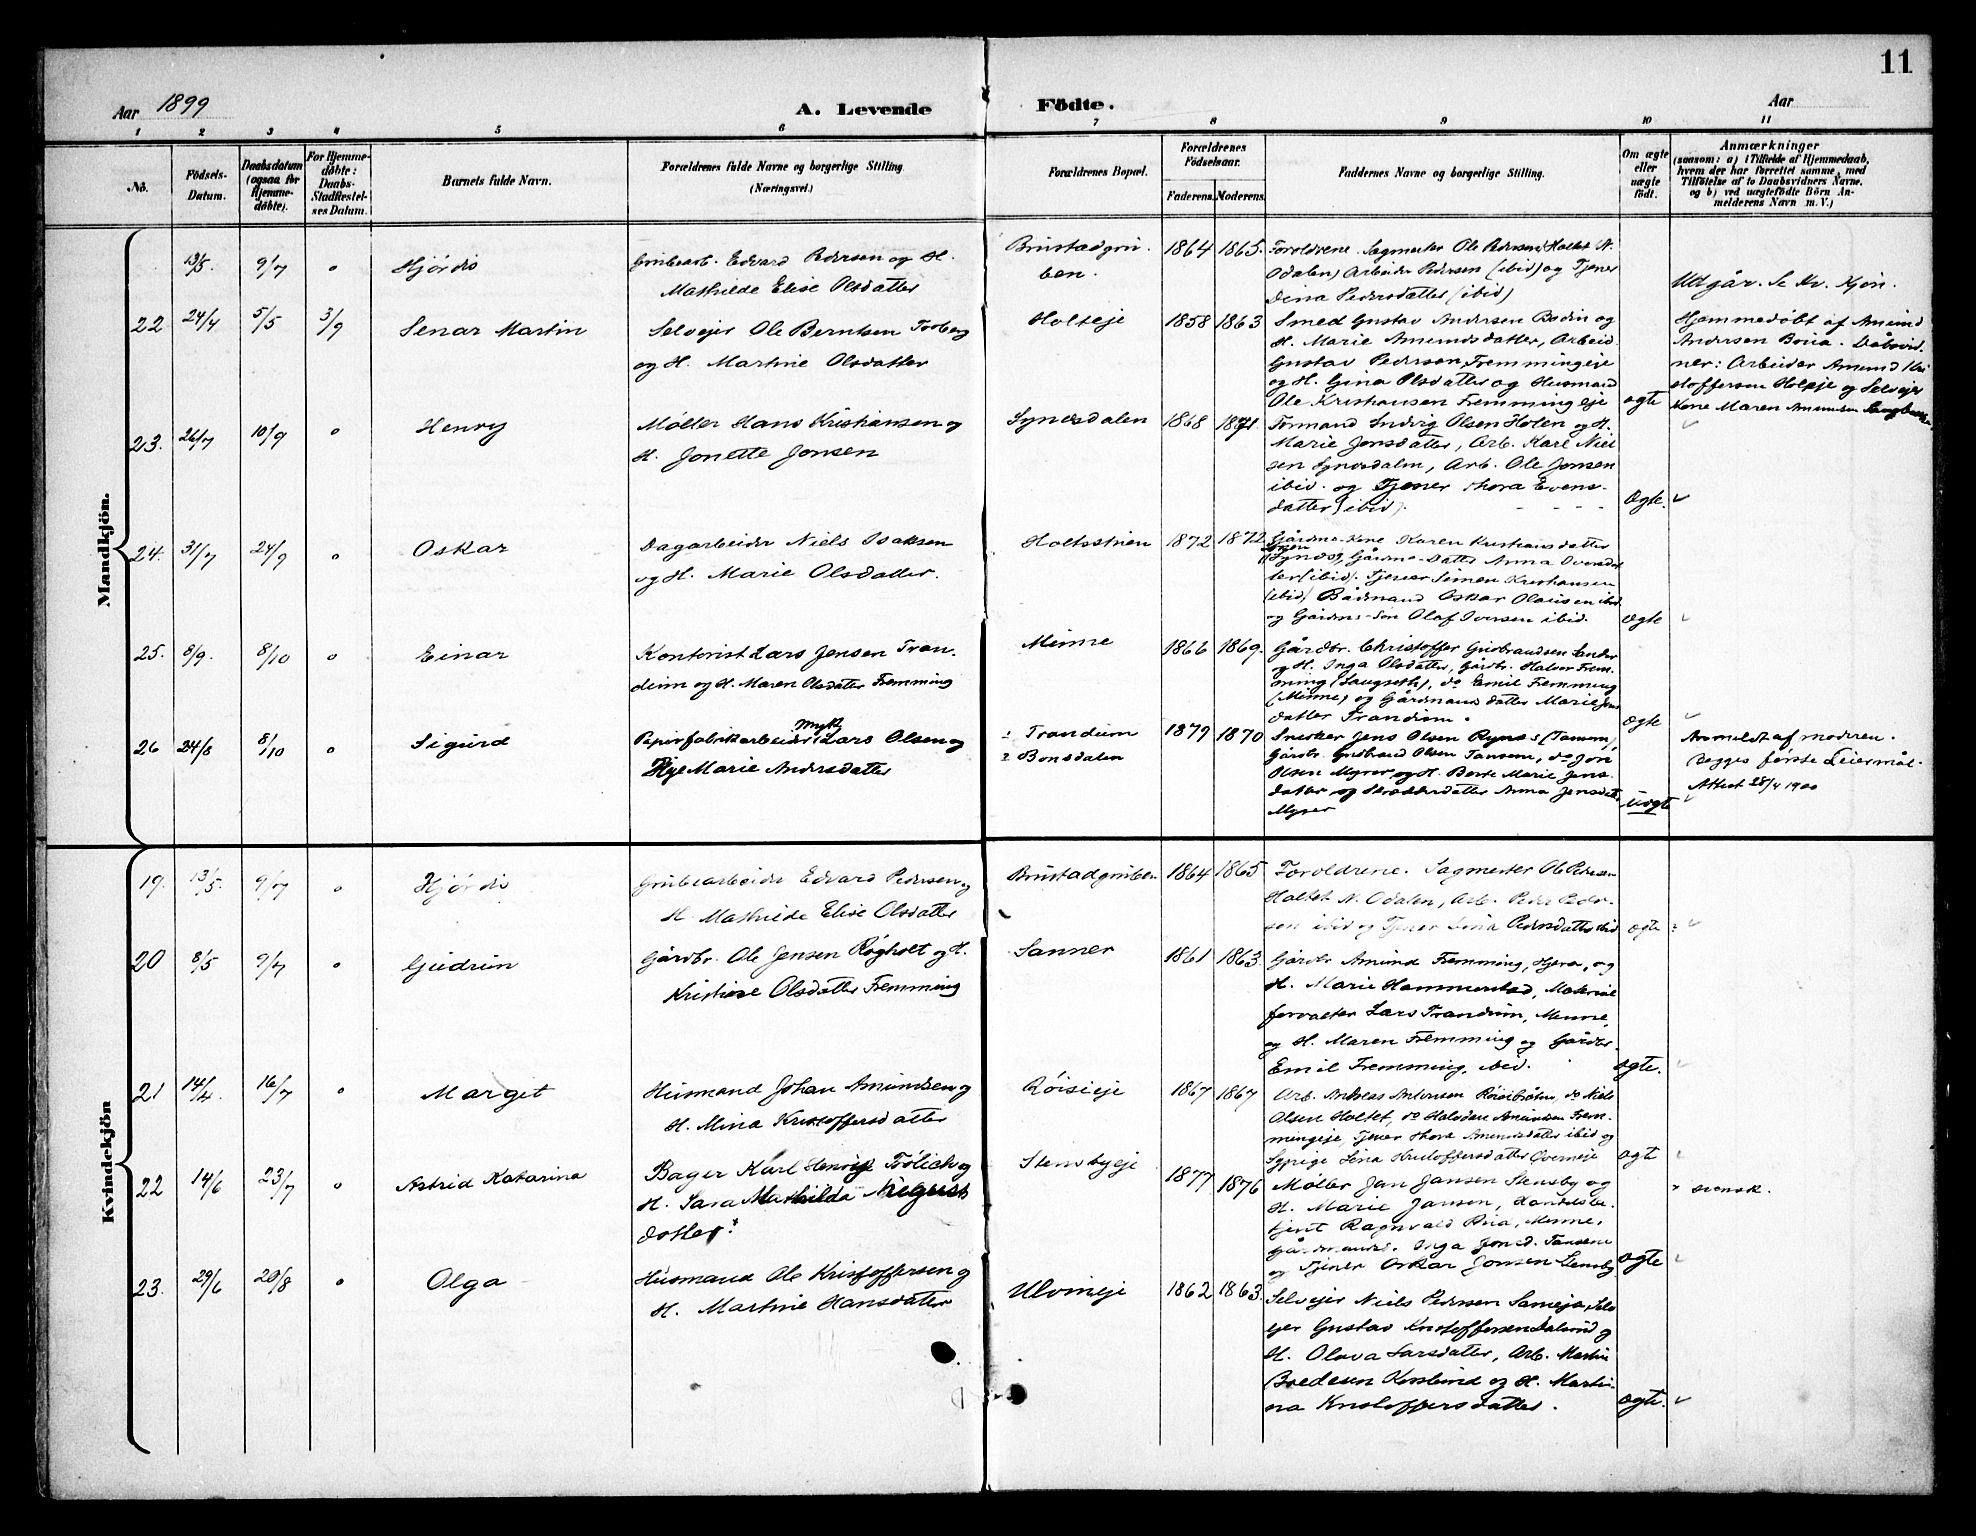 11
Aar 1899
A. Levende
Födte.
Aar
1 2 3 4 5 6 7 8 9 10 11
No.
Födsels-
Datum.
Daabsdatum
(ogsaa for
Hjemme-
döbte).
For Hjemme-
döbte:
Daabs-
Stadfæstel-
ses Datum.
Barnets fulde Navn.
Forældrenes fulde Navne og borgerlige Stilling
(Næringsvei.)
Forældrenes Bopæl.
Forældrenes
Födselsaar.
Faderens. Moderens.
Faddernes Navne og borgerlige Stilling.
Om ægte
eller
uægte
födt.
Anmærkninger
(saasom: a) i Tilfælde af Hjemmedaab,
hvem der har forrettet samme, med
Tilföielse af to Daabsvidners Navne,
og b) ved uægtefödte Börn An-
melderens Navn m. V.)
Mandkjön.
13/5. 9/7 " Hjørdis
Grubearb. Edvard Pedersen og H.
Mathilde Elise Olsdatter
Brustadgru-
ben.
1864 1865.
Forældrene Sagmester Ole Pedersen (Holtet N.
Odalen) Arbeider Pedersen (ibid) og Tjener
Dina Pedersdatter (ibid)
Udgår. Se Kv. Kjön.
22 24/4 5/5 3/9 Senar Martin
Selveier Ole Berntsen Torberg
og H. Martine Olsdatter
Holteje
1858 1863
Smed Gustav Andersen Bodin og
H. Marie Amundsdatter, Arbeid
Gustav Pedersen Fremmingeje
og H. Gina Olsdatter og Husmand
Ole Kristiansen Fremmingeje
ægte
Hjemmedøbt af Amund
Andersen Børia. Dåbsvid-
ner: Arbeider Amund Kri
stoffersen Holteje og Selveier
Kone Maren Amundsen
23. 26/7 10/9 " Henry
Møller Hans Kristiansen og
H. Jonette Jonsen
Synersdalen
1868 1871.
Formand Ludvig Olsen Holen og H.
Marie Jonsdatter, Arb. Karl Niel
sen Synersdalen, Arb. Ole Jonsen
ibid. og Tjener Thora Evens-
datter (ibid).
Ægte.
24. 31/7 24/9 " Oskar
Dagarbeider Niels Isaksen
og H. Marie Olsdatter.
Holtsstuen
1872 1872
Gårdm. Kone Karen Kristiansdatter
Gårdm. Datter Anna Iversdat
ter (ibid). Tjener Simen Kristiansen
(ibid) Bådmand Oskar Olausen ibid.
og Gårdm. Søn Olaf Iversen ibid.
ægte
25. 8/9. 8/10 " Einar
Kontorist Lars Jensen Tran-
dum og H. Maren Olsdatter Fremming
Minne
1866 1869.
Gårdbr. Christoffer Gudbrandsen Ender
og H. Inga Olsdatter, Gårdbr. Halvor Frem-
ming (Langseth), do Emil Fremming
(Minne) og Gårdmans datter Marie Jens
datter Trandum.
ægte
26 24/8 8/10 " Sigurd
Papirfabrikarbeider Lars Olsen og
Myhr
Pige Marie Andersdatter
1 Trandum
2 Bonsdalen
1879 1870
Snedker Jens Olsen Rynes (Tansum),
Gårdbr. Gudbrand Olsen Tansem, do Jon
Olsen Myrer og H. Berte Marie Jens-
datter og Skrædderdatter Anna Jensdatter
Myrer
uægte
Anmeldt af moderen.
Begges første Leiermål.
Attest 28/4 1900
Kvindekjön
19. 13/5. 9/7 " Hjørdis
Grubearbeider Edvard Pedersen og
H. Mathilde Elise Olsdatter
Brustadgruben
1864 1865
Forældrene. Sagmester Ole Pedersen
Holtet N. Odalen, Arb. Peder Peder-
sen ibid og Tjener Lina Pedersdatter ibid
ægte
20 8/5 9/7 " Gudrun
Gårdbr. Ole Jensen Røgholt og H.
Kristiane Olsdatter Fremming
Sanner
1861 1863.
Gårdbr Amund Fremming, Hjera, og
H. Marie Hammerstad, Material
forvalter Lars Trandum, Minne,
og H. Maren Fremming og Gårdbr.
Emil Fremming, ibid.
ægte.
21 14/4. 16/7 " Margit
Husmand Johan Amundsen og
H. Mina Kristoffersdatter
Røiseeje
1867 1867
Arb. Andreas Andersen Røisibråten, do Niels
Olsen Holtet, do Halvdan Amundsen Frem-
mingeje, Tjener Thora Amundsdatter ibid og
Sypige Lina Kristoffersdatter Ovemeje
ægte
22 14/6 23/7 " Astrid Katarina
Bager Karl Henrik Frölich og
H. Sara Mathilda
dotter:
Stensbyeje
1877 1876
Møller Jan Jansen Stensby og
H. Marie Jansen, Handelsbe-
tjent Ragnvald Bria, Minne,
Gårdmandsd. Inga Jonsd. Tansem
og Tjener Oskar Jonsen Stensby
ægte
svensk.
23. 29/6 20/8 " Olga
Husmand Ole Kristoffersen og
H. Martine Hansdatter
Ulvineje
1862 1863.
Selveier Niels Pedersen Saneeje, Selv
ejer Gustav Kristoffersen Dalsrud og
H. Olava Larsdatter, Arb. Martin
Bredesen Korslund og H. Marti-
na Kristoffersdatter.
ægte.